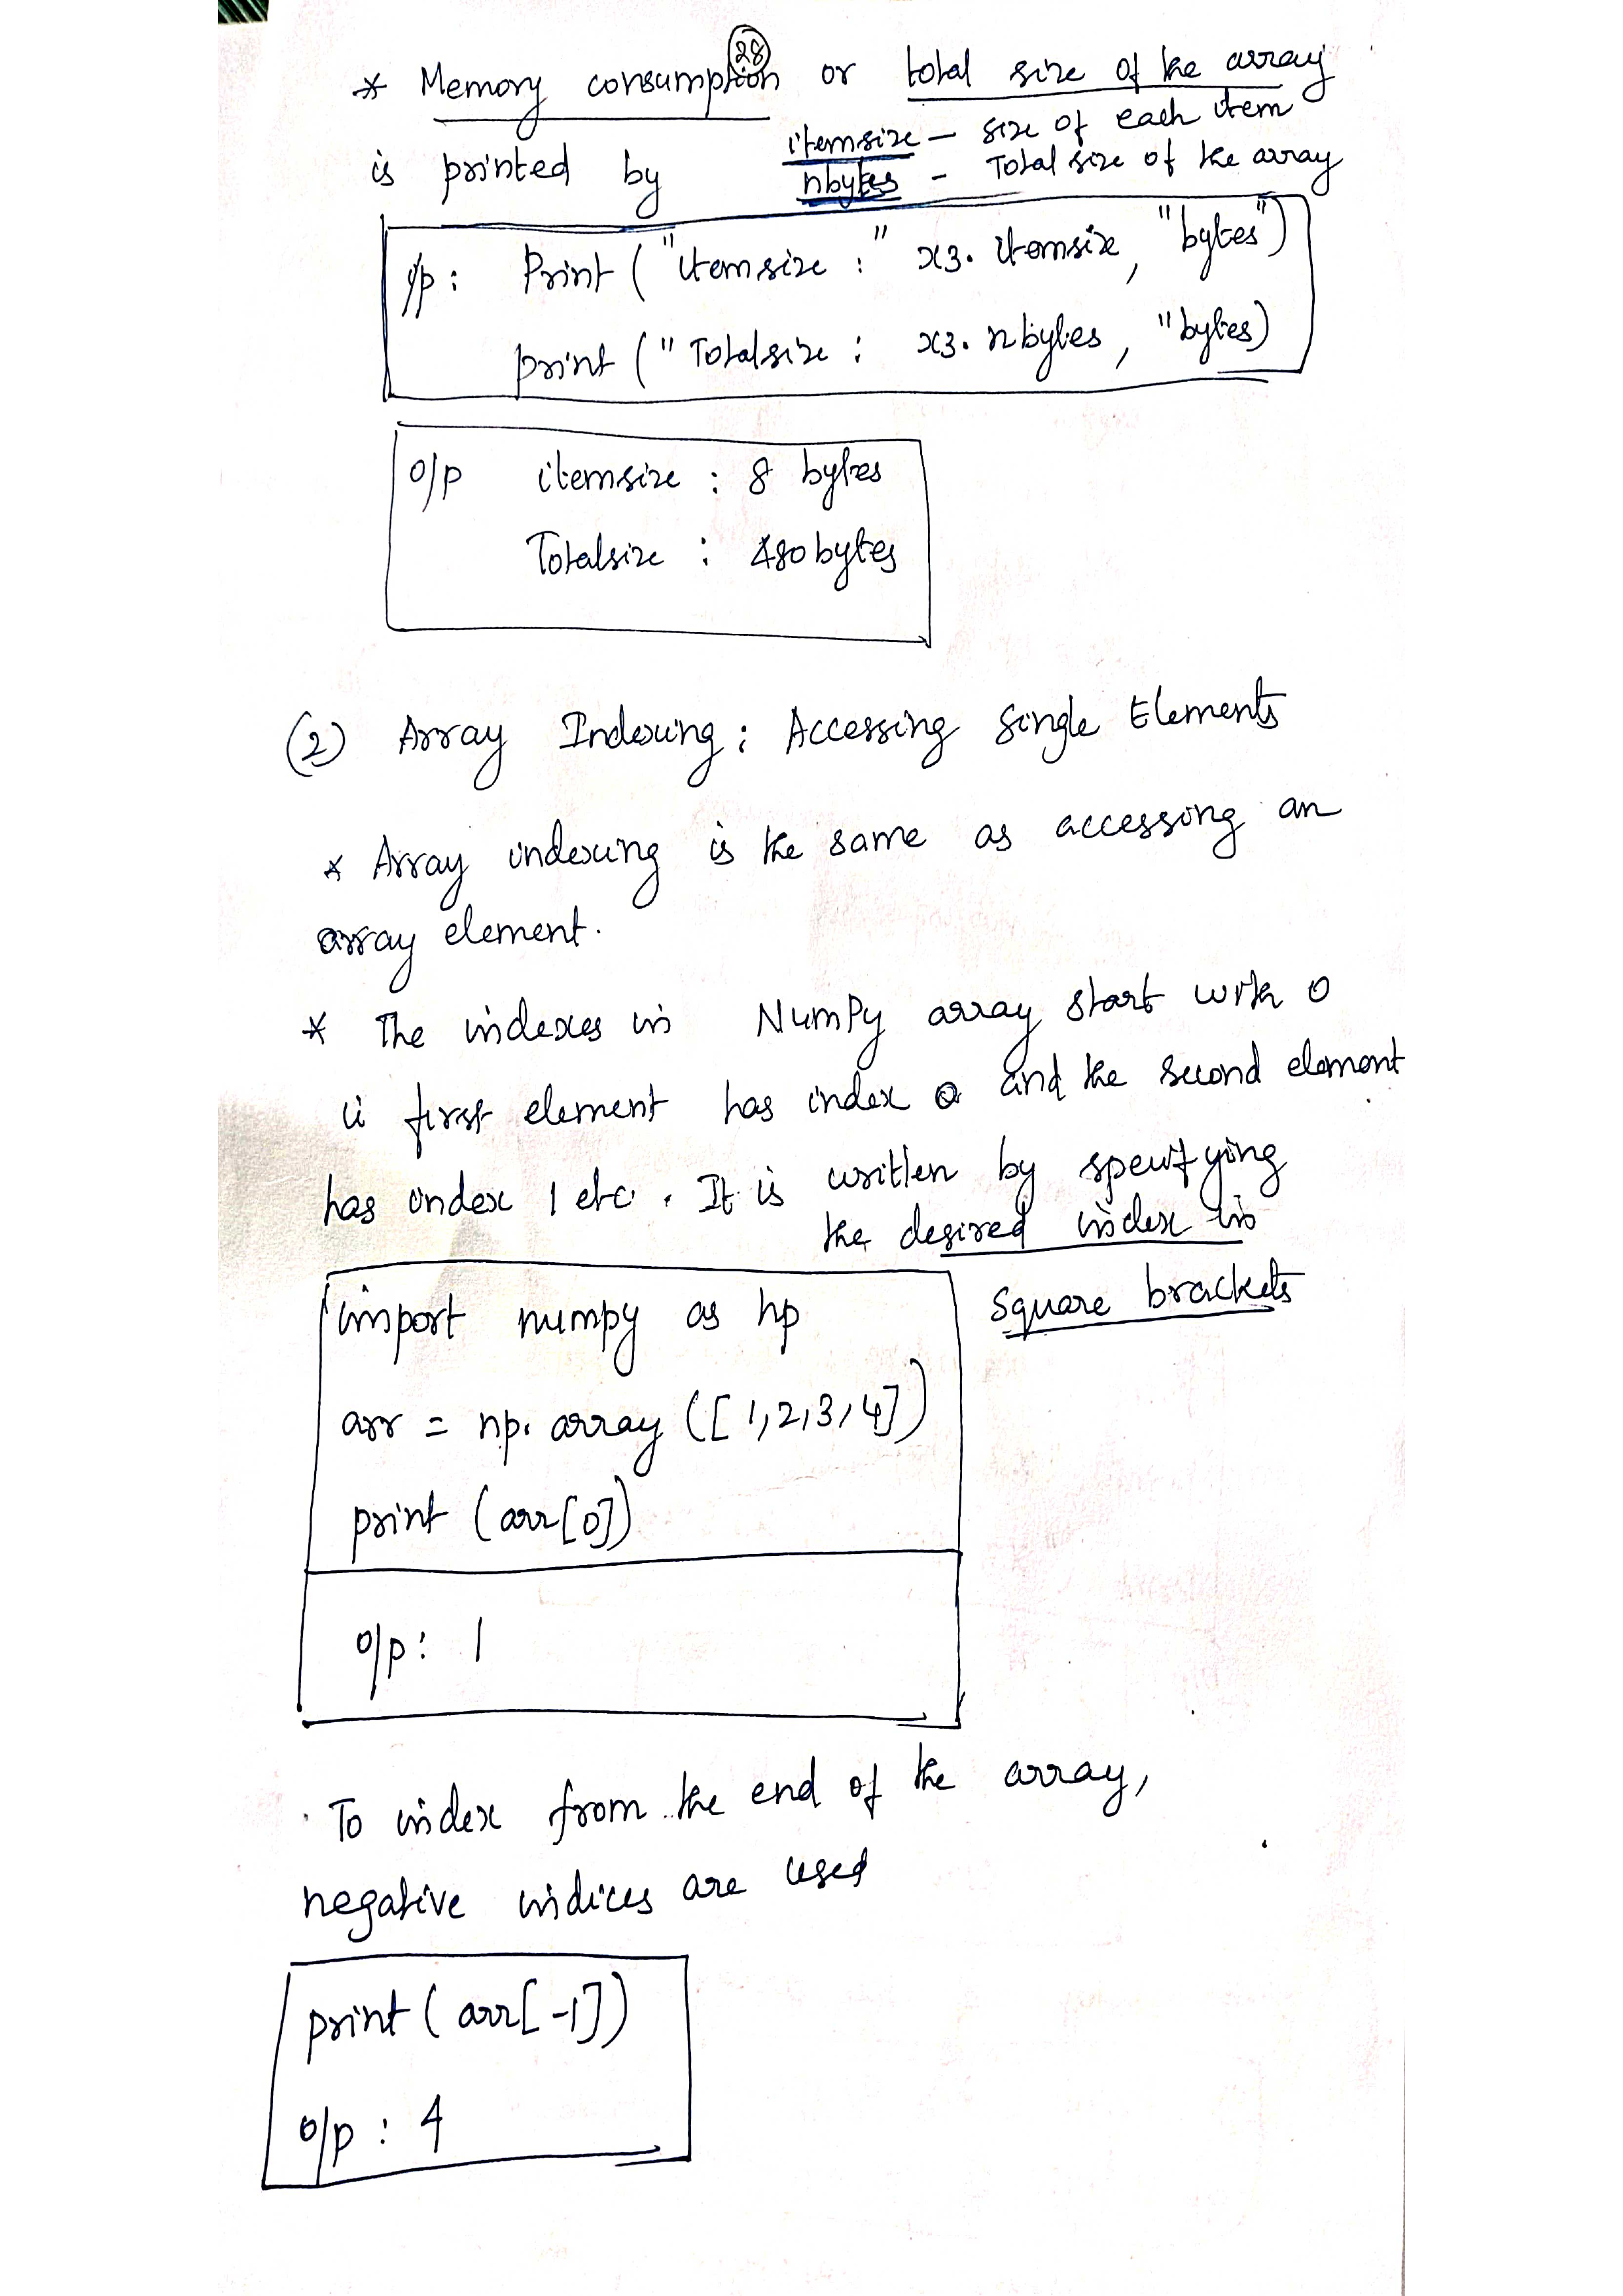 28
* Memory consumption or total size of the array
is printed by
itemsize - size of each item
nbytes - Total size of the array
i/p: Print ("itemsize :" x3.itemsize, "bytes")
print ("Totalsize : x3.nbytes, "bytes)
o/p itemsize : 8 bytes
Totalsize : 480 bytes
(2) Array Indexing: Accessing Single Elements
* Array indexing is the same as accessing an
array element.
* The indexes in NumPy array start with 0
ii first element has index 0 and the second element
has index 1 etc. It is written by specifying
the desired index in
square brackets
import numpy as np
arr = np.array ([1,2,3,4])
print (arr[0])
o/p: 1
To index from the end of the array,
negative indices are used
print (arr[-1])
o/p : 4